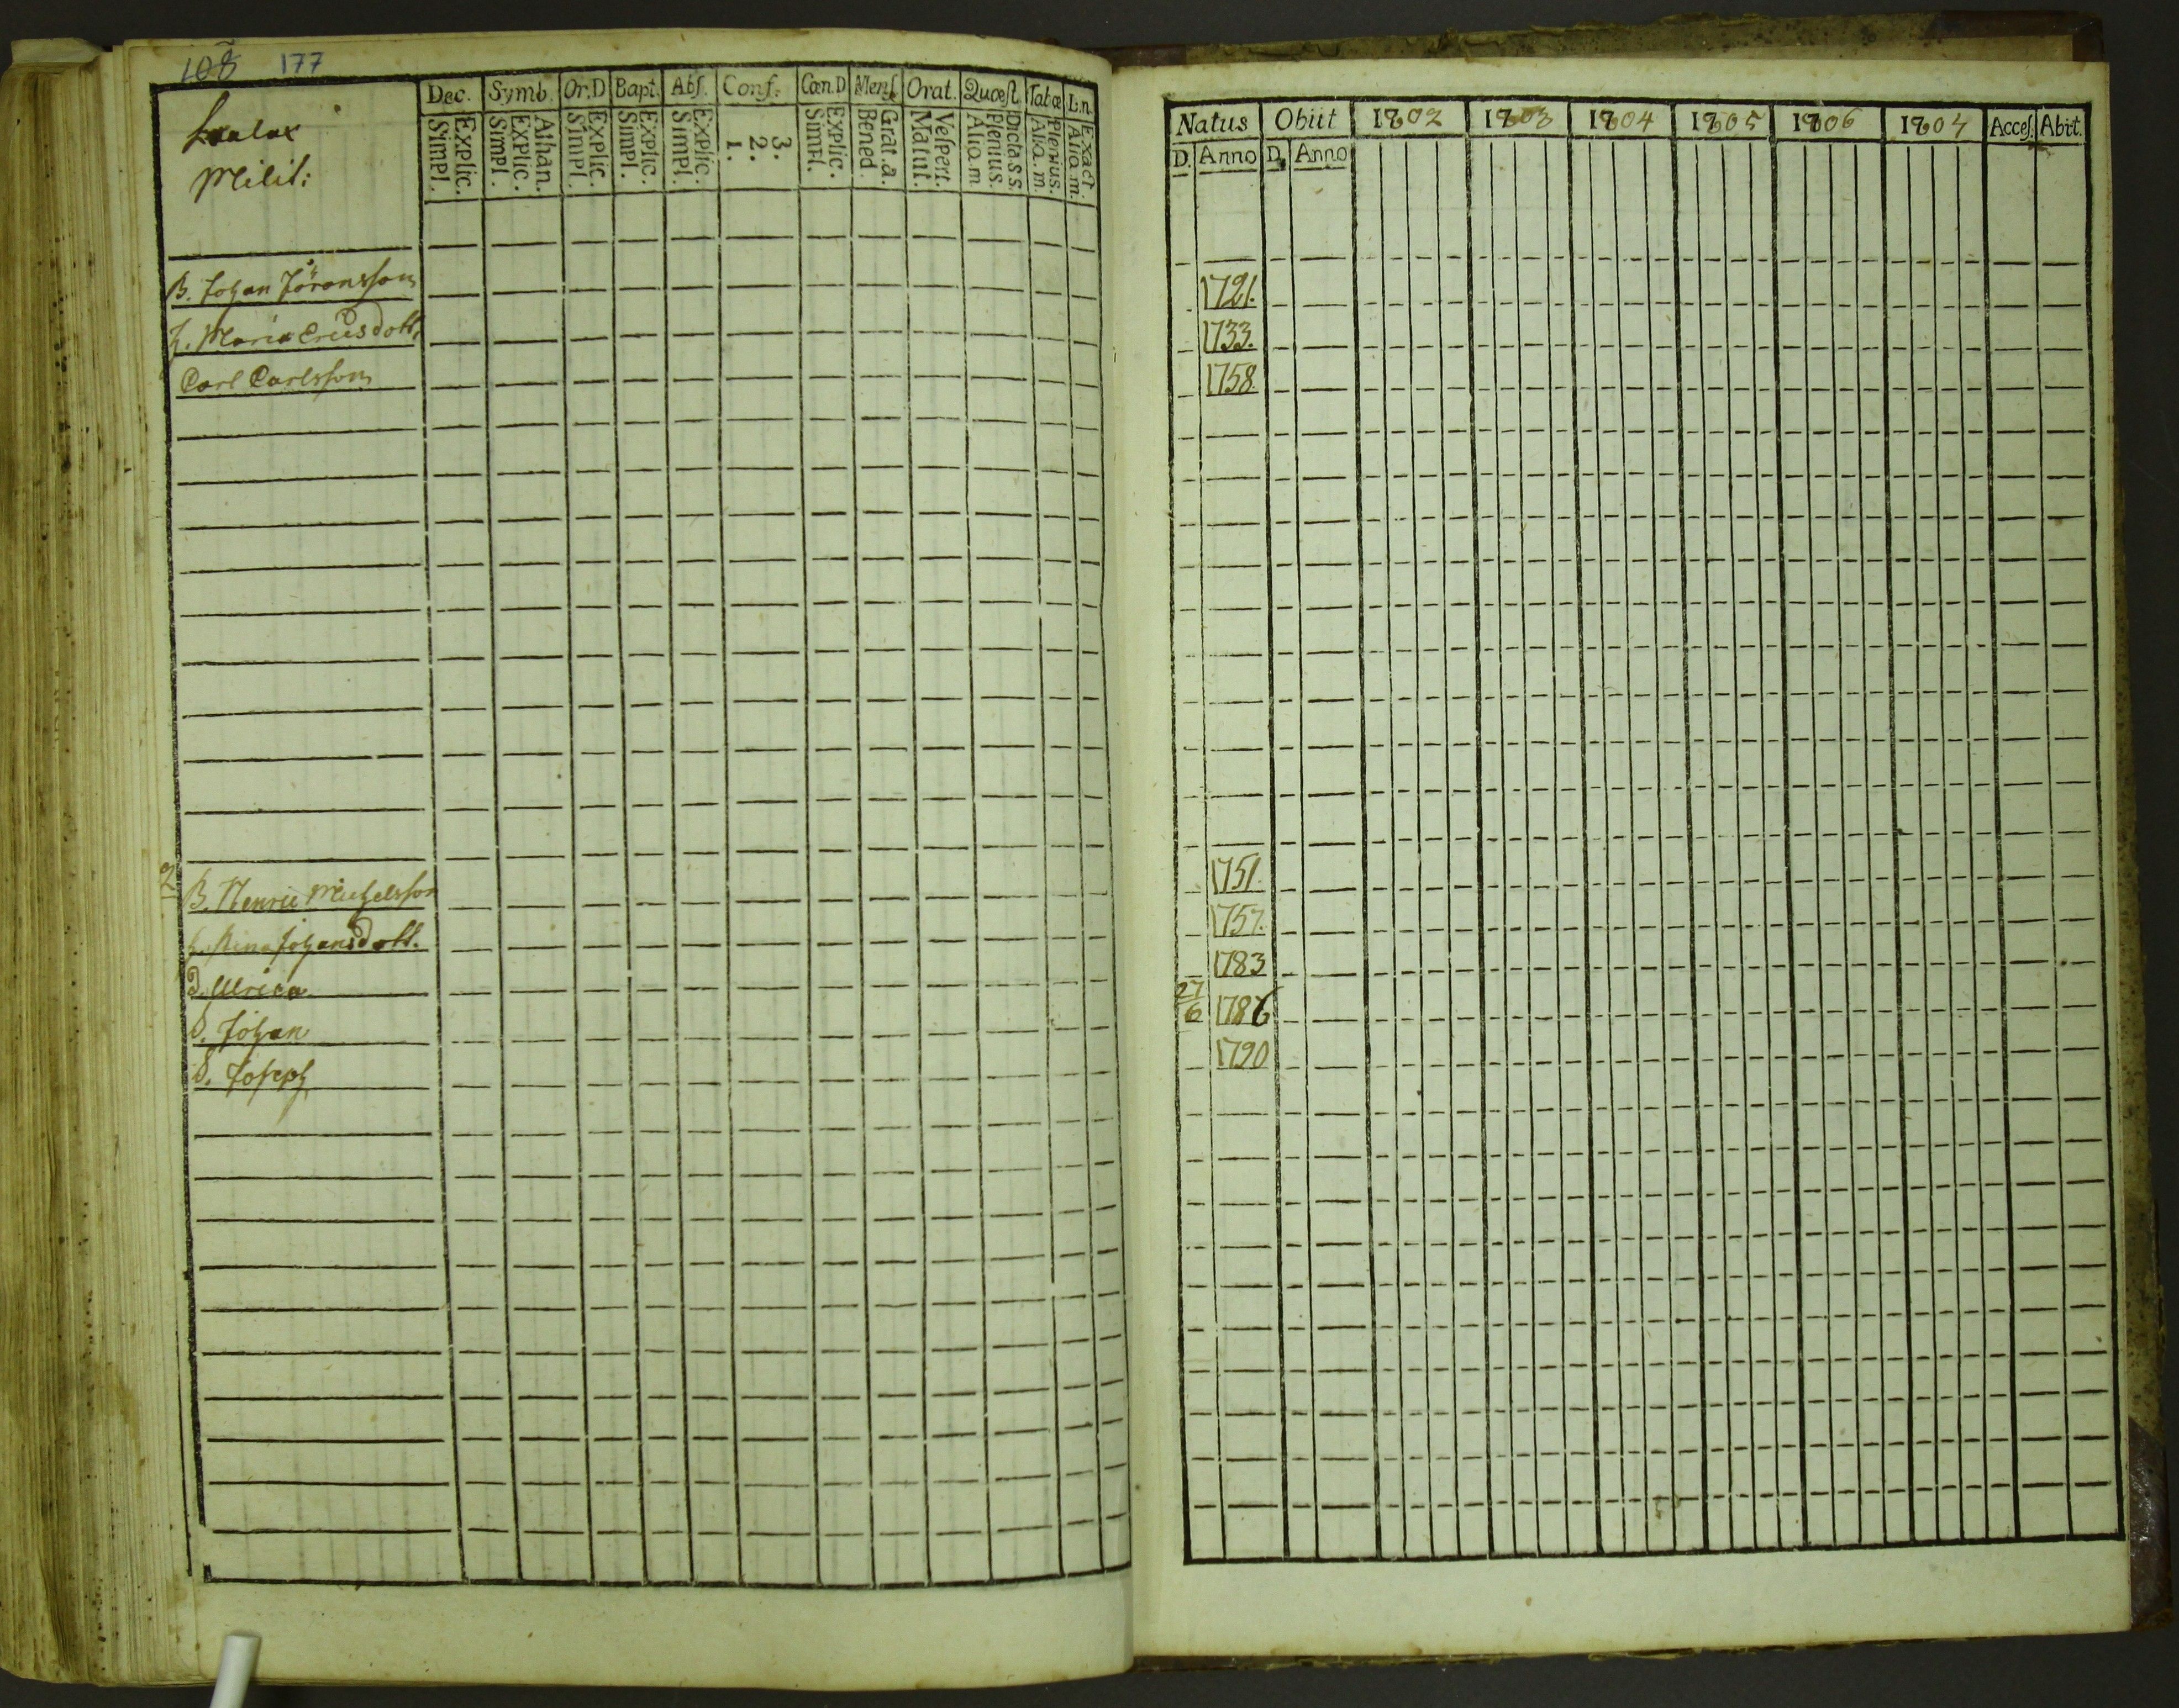 108 177
Militi:
Dec. Symb. Or.D Bapt. Abſ. Conf: Cœn.D Menſ. Orat. Quœſt. Tabœ L:n.
Simpl. Explic. Simpl. Explic. Athan. Simpl. Explic. Simpl. Explic. Simpl. Explic. 1. 2. 3. Simpl. Explic. Bened. Grat.a. Matut. Veſpert. Alio.m Plenius. Dicta.S.S. Alia.m. Plenius. Alio.m. Exact.
B. Johan Jöransson
h. Maria Ericsdott.
Carl Carlsson
2
B. Henric Michelsson
h. Stina Johansdott.
D. Ulrica
S. Johan
S. Joseph
Natus Obiit 1802 1803 1804 1805 1806 1807 Acceſ. Abit.
D. Anno D. Anno
1721.
1733.
1758.
1751.
1757.
1783
27/6 1786
1790